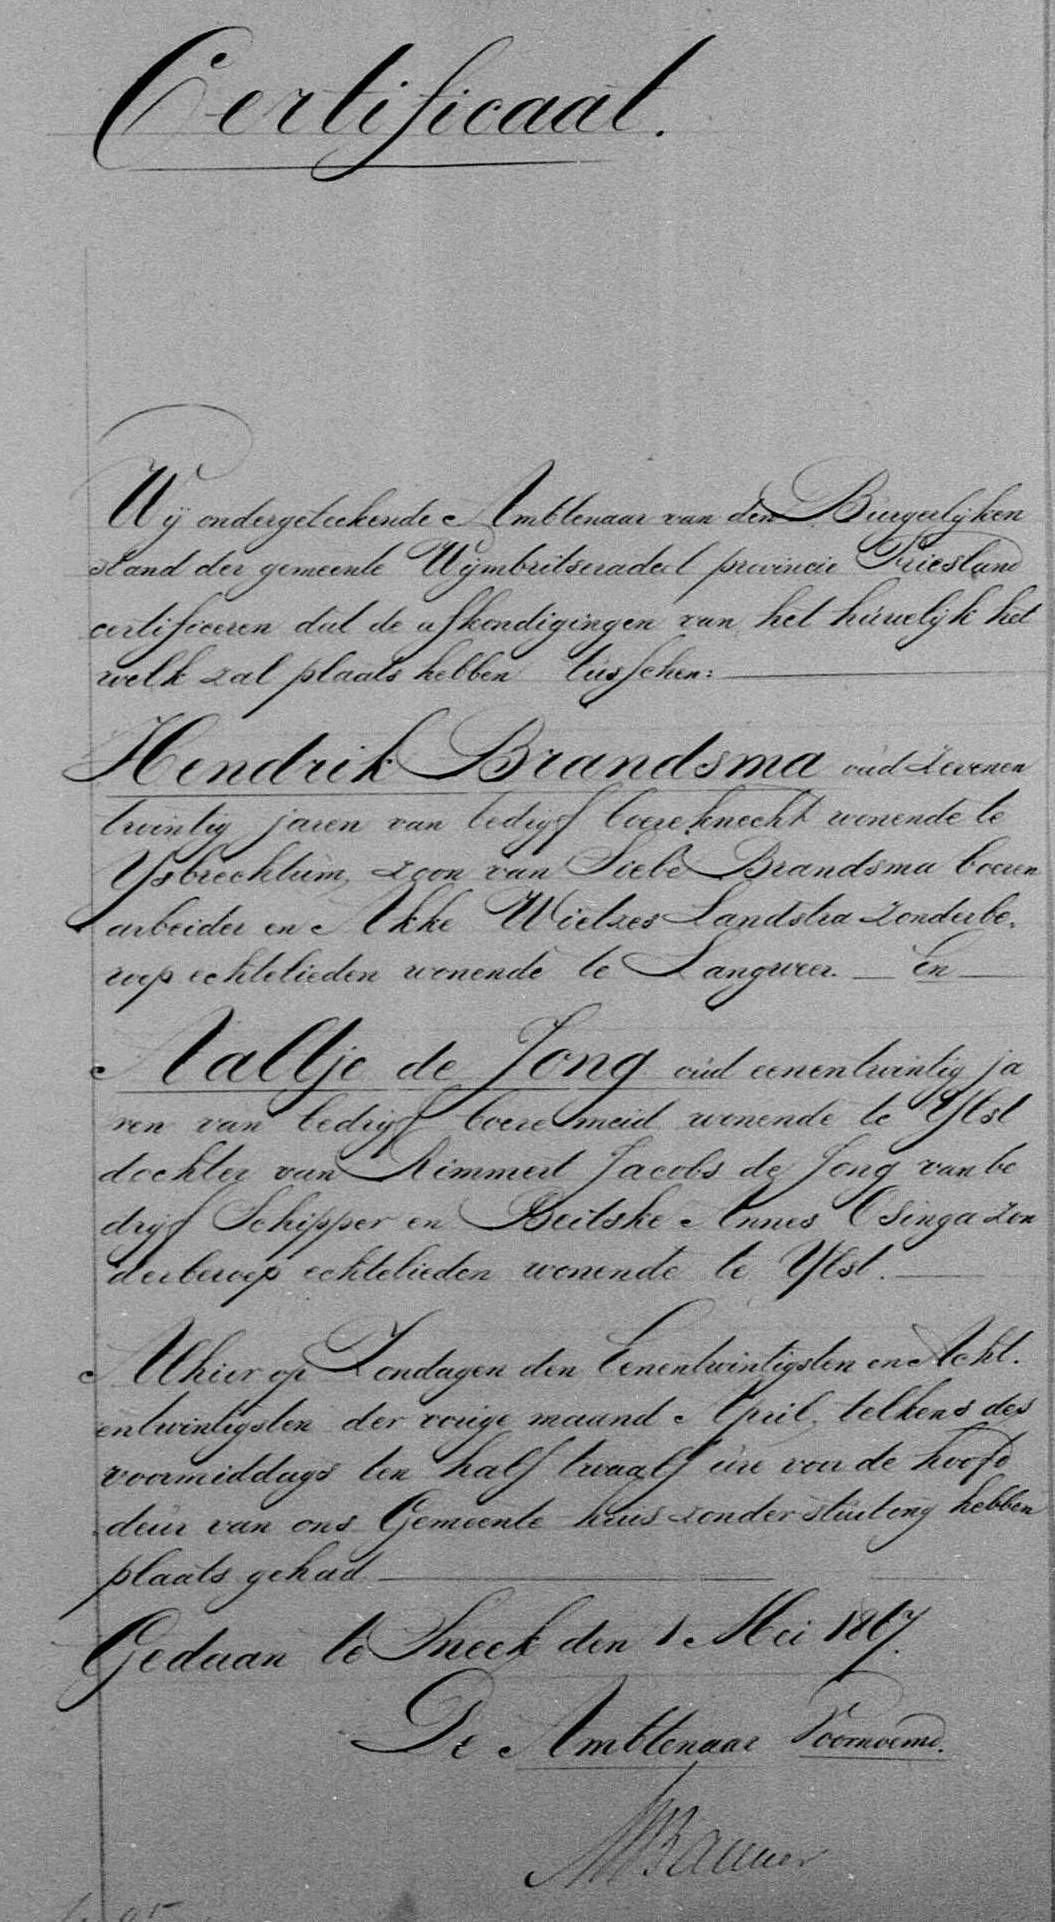 Certificaat.
Wij ondergeteekende Ambtenaar van den Burgerlijken
stand der gemeente Wijmbritseradeel provincie Friesland
certificeren dat de afkondigingen van het huwelijk het
welk zal plaats hebben tusschen:
Hendrik Brandsma oud zevenen
twintig jaren van bedrijf boereknecht wonende te
Ysbrechtum, zoon van Siebe Brandsma boeren
arbeider en Akke Wietzes Landstra zonderbe-
roep echtelieden wonende te Langweer. — En —
Aaltje de Jong oud eenentwintig ja
ren van bedrijf boeremeid wonende te Ylst
dochter van Rimmert Jacobs de Jong van be
drijf Schipper en Beitske Annes Osinga zon
derberoep echtelieden wonende te Ylst.
Alhier op Zondagen den Eenentwintigsten en Acht.
entwintigsten der vorige maand April, telkens des
voormiddags ten half twaalf ure voor de hoofd
deur van ons Gemeente huis zonder stuiting hebben
plaats gehad
Gedaan te Sneek den 1 Mei 1867.
De Ambtenaar Voornoemd.